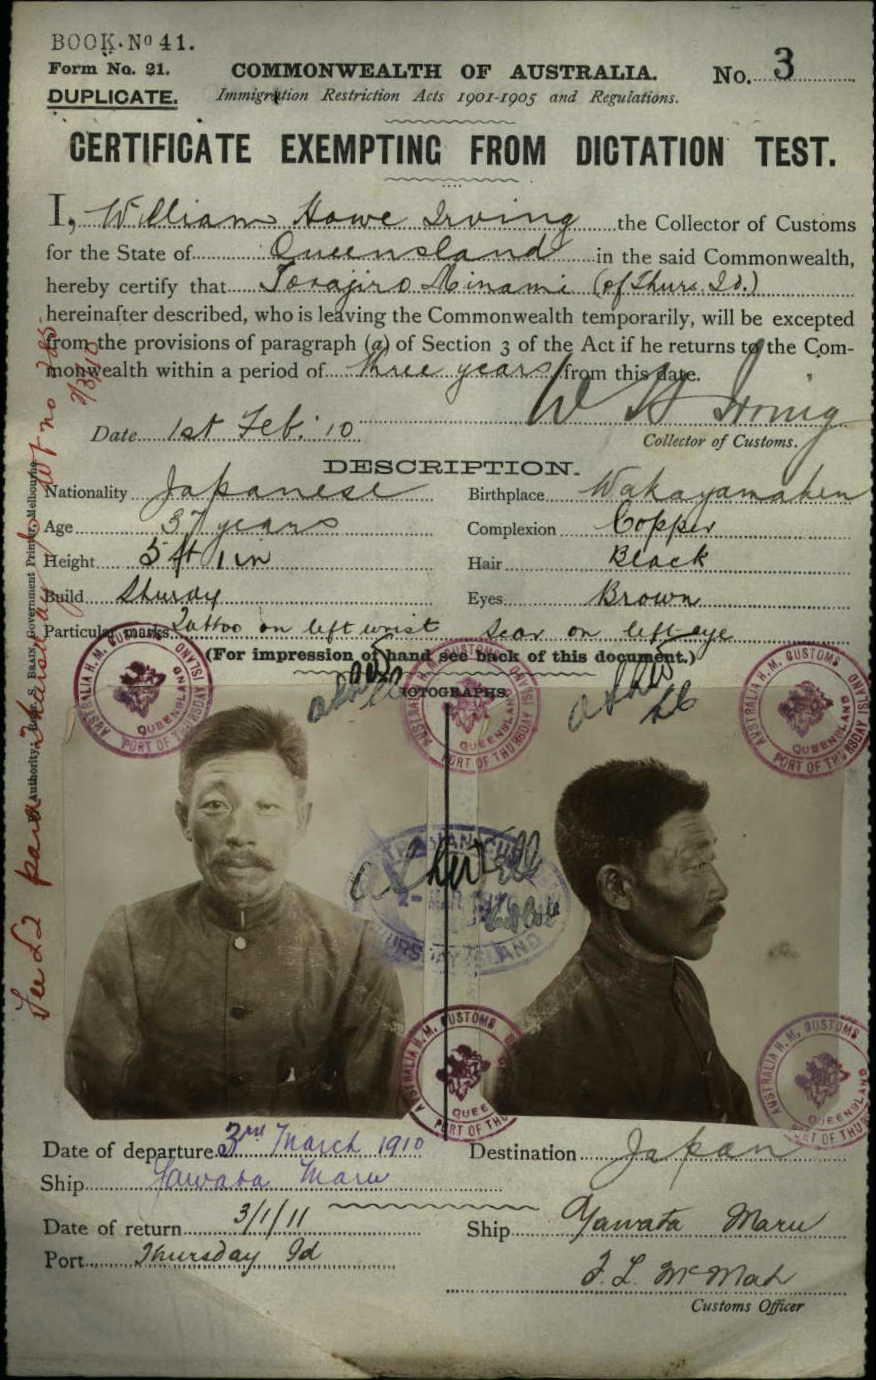 BOOK. No 41.
Form No. 21.
COMMONWEALTH OF AUSTRALIA.
No. 3
DUPLICATE.
Immigration Restriction Acts 1901-1905 and Regulations.
CERTIFICATE EXEMPTING FROM DICTATION TEST.
I, William Howe Irving the Collector of Customs
for the State of Queensland in the said Commonwealth,
hereby certify that Torajiro Minami (of Thurs. Id.)
hereinafter described, who is leaving the Commonwealth temporarily, will be excepted
from the provisions of paragraph (a) of Section 3 of the Act if he returns to the Com-
monwealth within a period of three years from this date.
W H Irving
Date 1st Feb. '10
Collector of Customs.
DESCRIPTION.
Nationality Japanese
Birthplace Wakayamaken
Age 37 years
Complexion Copper
Height 5 ft 1 in
Hair Black
Build Sturdy
Eyes Brown
Particular marks. Tattoo on left wrist Scar on left eye
(For impression of hand see back of this document.)
PHOTOGRAPHS.
AUSTRALIA H.M. CUSTOMS
QUEENSLAND
PORT OF THURSDAY ISLAND
AUSTRALIA H.M. CUSTOMS
QUEENSLAND
PORT OF THURSDAY
AUSTRALIA H.M. CUSTOMS
QUEENSLAND
PORT OF THURSDAY ISLAND
THURSDAY ISLAND
AUSTRALIA H.M. CUSTOMS
QUEE
PORT OF TH
AUSTRALIA H.M. CUSTOMS
QUEENSLAND
PORT OF THU
Date of departure 3rd March 1910
Destination Japan
Ship Yawata Maru
Date of return 3/1/11
Ship Yawata Maru
Port Thursday Id
F. L. McMah
Customs Officer
Government Printer, Melbourne